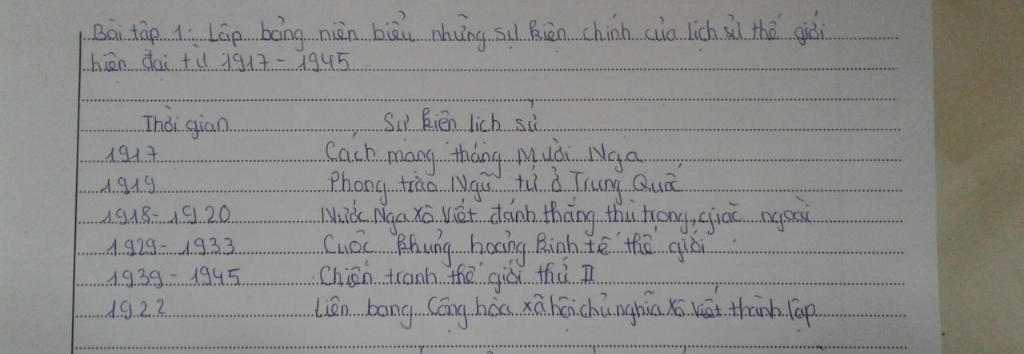 Bài tập 1: Lập bảng niên biểu những sự kiện chính của lịch sử thế giới
hiện đại từ 1917 - 1945
Thời gian Sự kiện lịch sử
1917 Cách mạng tháng Mười Nga
1919 Phong trào Ngũ tứ ở Trung Quốc
1918 - 1920 Nước Nga Xô Viết đánh thắng thù trong, giặc ngoài
1929 - 1933 Cuộc khủng hoảng kinh tế thế giới
1939 - 1945 Chiến tranh thế giới thứ II
1922 Liên bang Cộng hòa xã hội chủ nghĩa Xô Viết thành lập